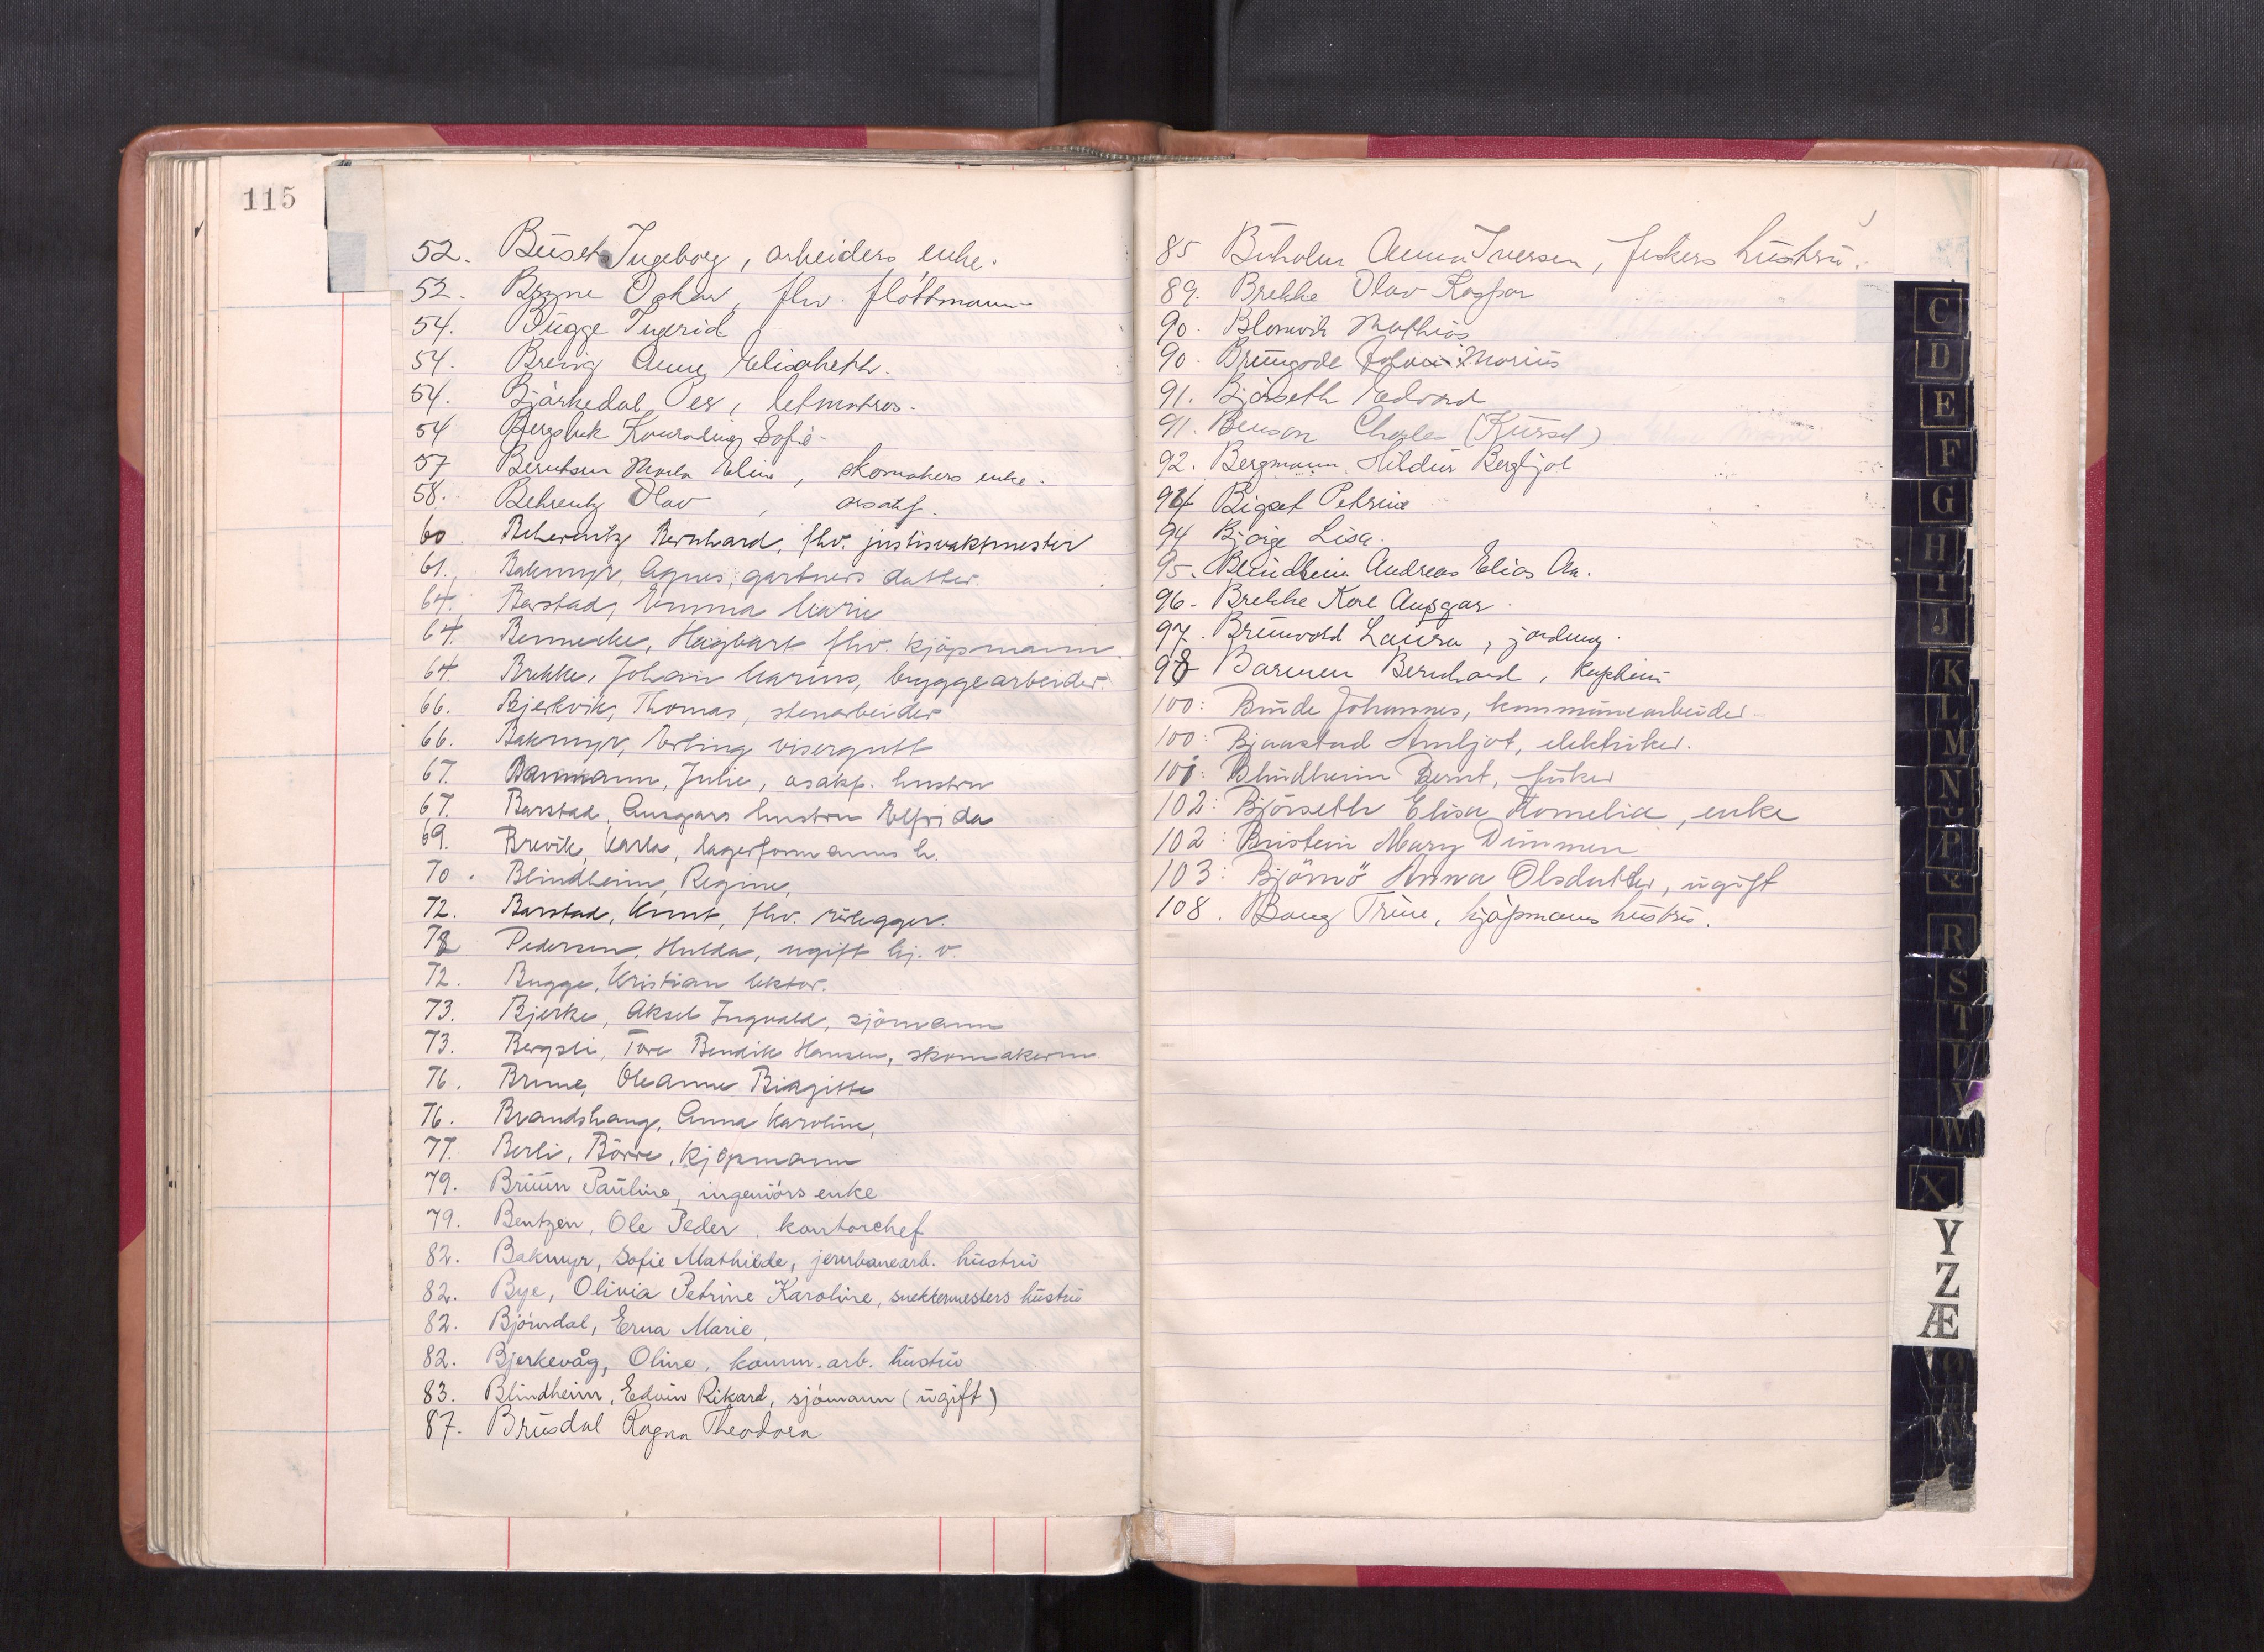 115
52. Buset Ingeborg, arbeiders enke.
52. Bryne Oskar, fhv. fløttmann
54. Bugge Ingerid
54. Breivig Anny Elisabeth.
54. Bjärkedal Per, letmatros.
54 Konradine Sofie
57 Berntsen Marta Eline, skomakers enke.
58. Behrentz Olav, assakf.
60. Beherentz Bernhard, fhv. justisvaktmester
61. Bakmyr, Agnes, gartners datter.
64. Barstad, Emma Marie
64. Bennecke, Hagbart fhv. kjøpmann.
64. Brekke, Johan Marius, bryggearbeider.
66. Bjerkvik, Thomas, stenarbeider
66. Bakmyr, Erling visergutt
67. Julie, asakf. hustru
67. Barstad, Ansgars hustru Elfrida
69. Brevik, Karla, lagerformanns h.
70. Blindheim, Regine,
72. Barstad, Knut, fhv. rørlegger.
72 Pedersen, Hulda, ugift hj. v.
72. Bugge, Kristian lektor.
73. Bjerke, Aksel Ingvald, sjömann
73. Bergsli, Tore Bendik Hansen, skomakerm
76. Brune, Oleanne Birgitte
76. Brandshaug, Anna Karoline,
77. Berli, Börre, kjøpmann
79. Brüün Paüline, ingeniörs enke
79. Bentzen, Ole Peder, kontorchef
82. Bakmyr, Sofie Mathilde, jernbanearb. hüstrü
82. Bye, Olivia Petrine Karoline, snekkermesters hüstrü
82. Björndal, Erna Marie,
82. Bjerkevåg, Oline, komm. arb. hüstrü
83. Blindheim, Edvin Rikard, sjömann (ügift)
87. Brüsdal Ragna Theodora
85 Büholm Anna Iversen, fiskers hüstrü.
89. Brekke Olav Kaspar
90. Blomvik Mathias
90. Johan Marius
91. Bjørseth Edvard
91. Benson Charles (Kürsel)
92. Bergmann Hildür Bergljot
94 Bigset Petrine
94 Bjørge Lisa.
95. Blindheim Andreas Elias An.
96. Brekke Kare Ansgar.
97. Brünvold Laüra, jordmog.
98 Barmen Bernhard, kaptein
100: Büde Johannes, kommünearbeider.
100: Bjaastad Arnljot, elektriker.
101: Blindheim Bernt, fisker
102: Björseth Elisa Kornelia, enke
102: Bristein Mary Dimmen
103: Björnö Anna Olsdatter, ügift
108. Bang Trine, kjøpmans hüstrü.
C
D
E
F
G
H
I
J
K
L
M
N
P
R
S
T
U
V
W
X
Y
Z
Æ
Ø